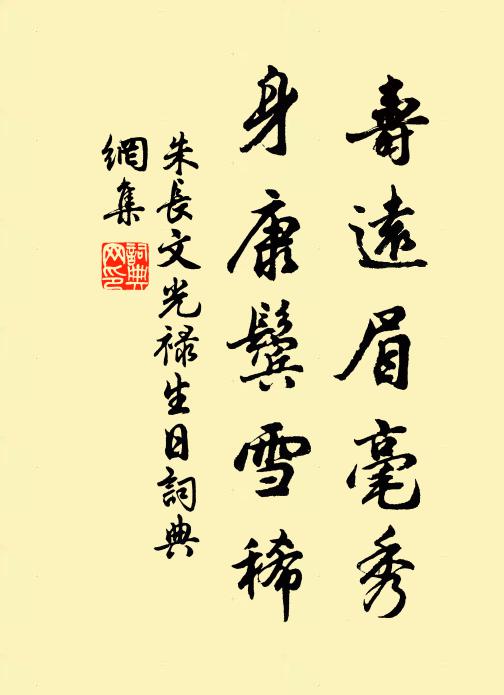 壽遠眉毫秀
身康鬢雪稀
朱長文光祿生日詞典
網集
詞典
网印